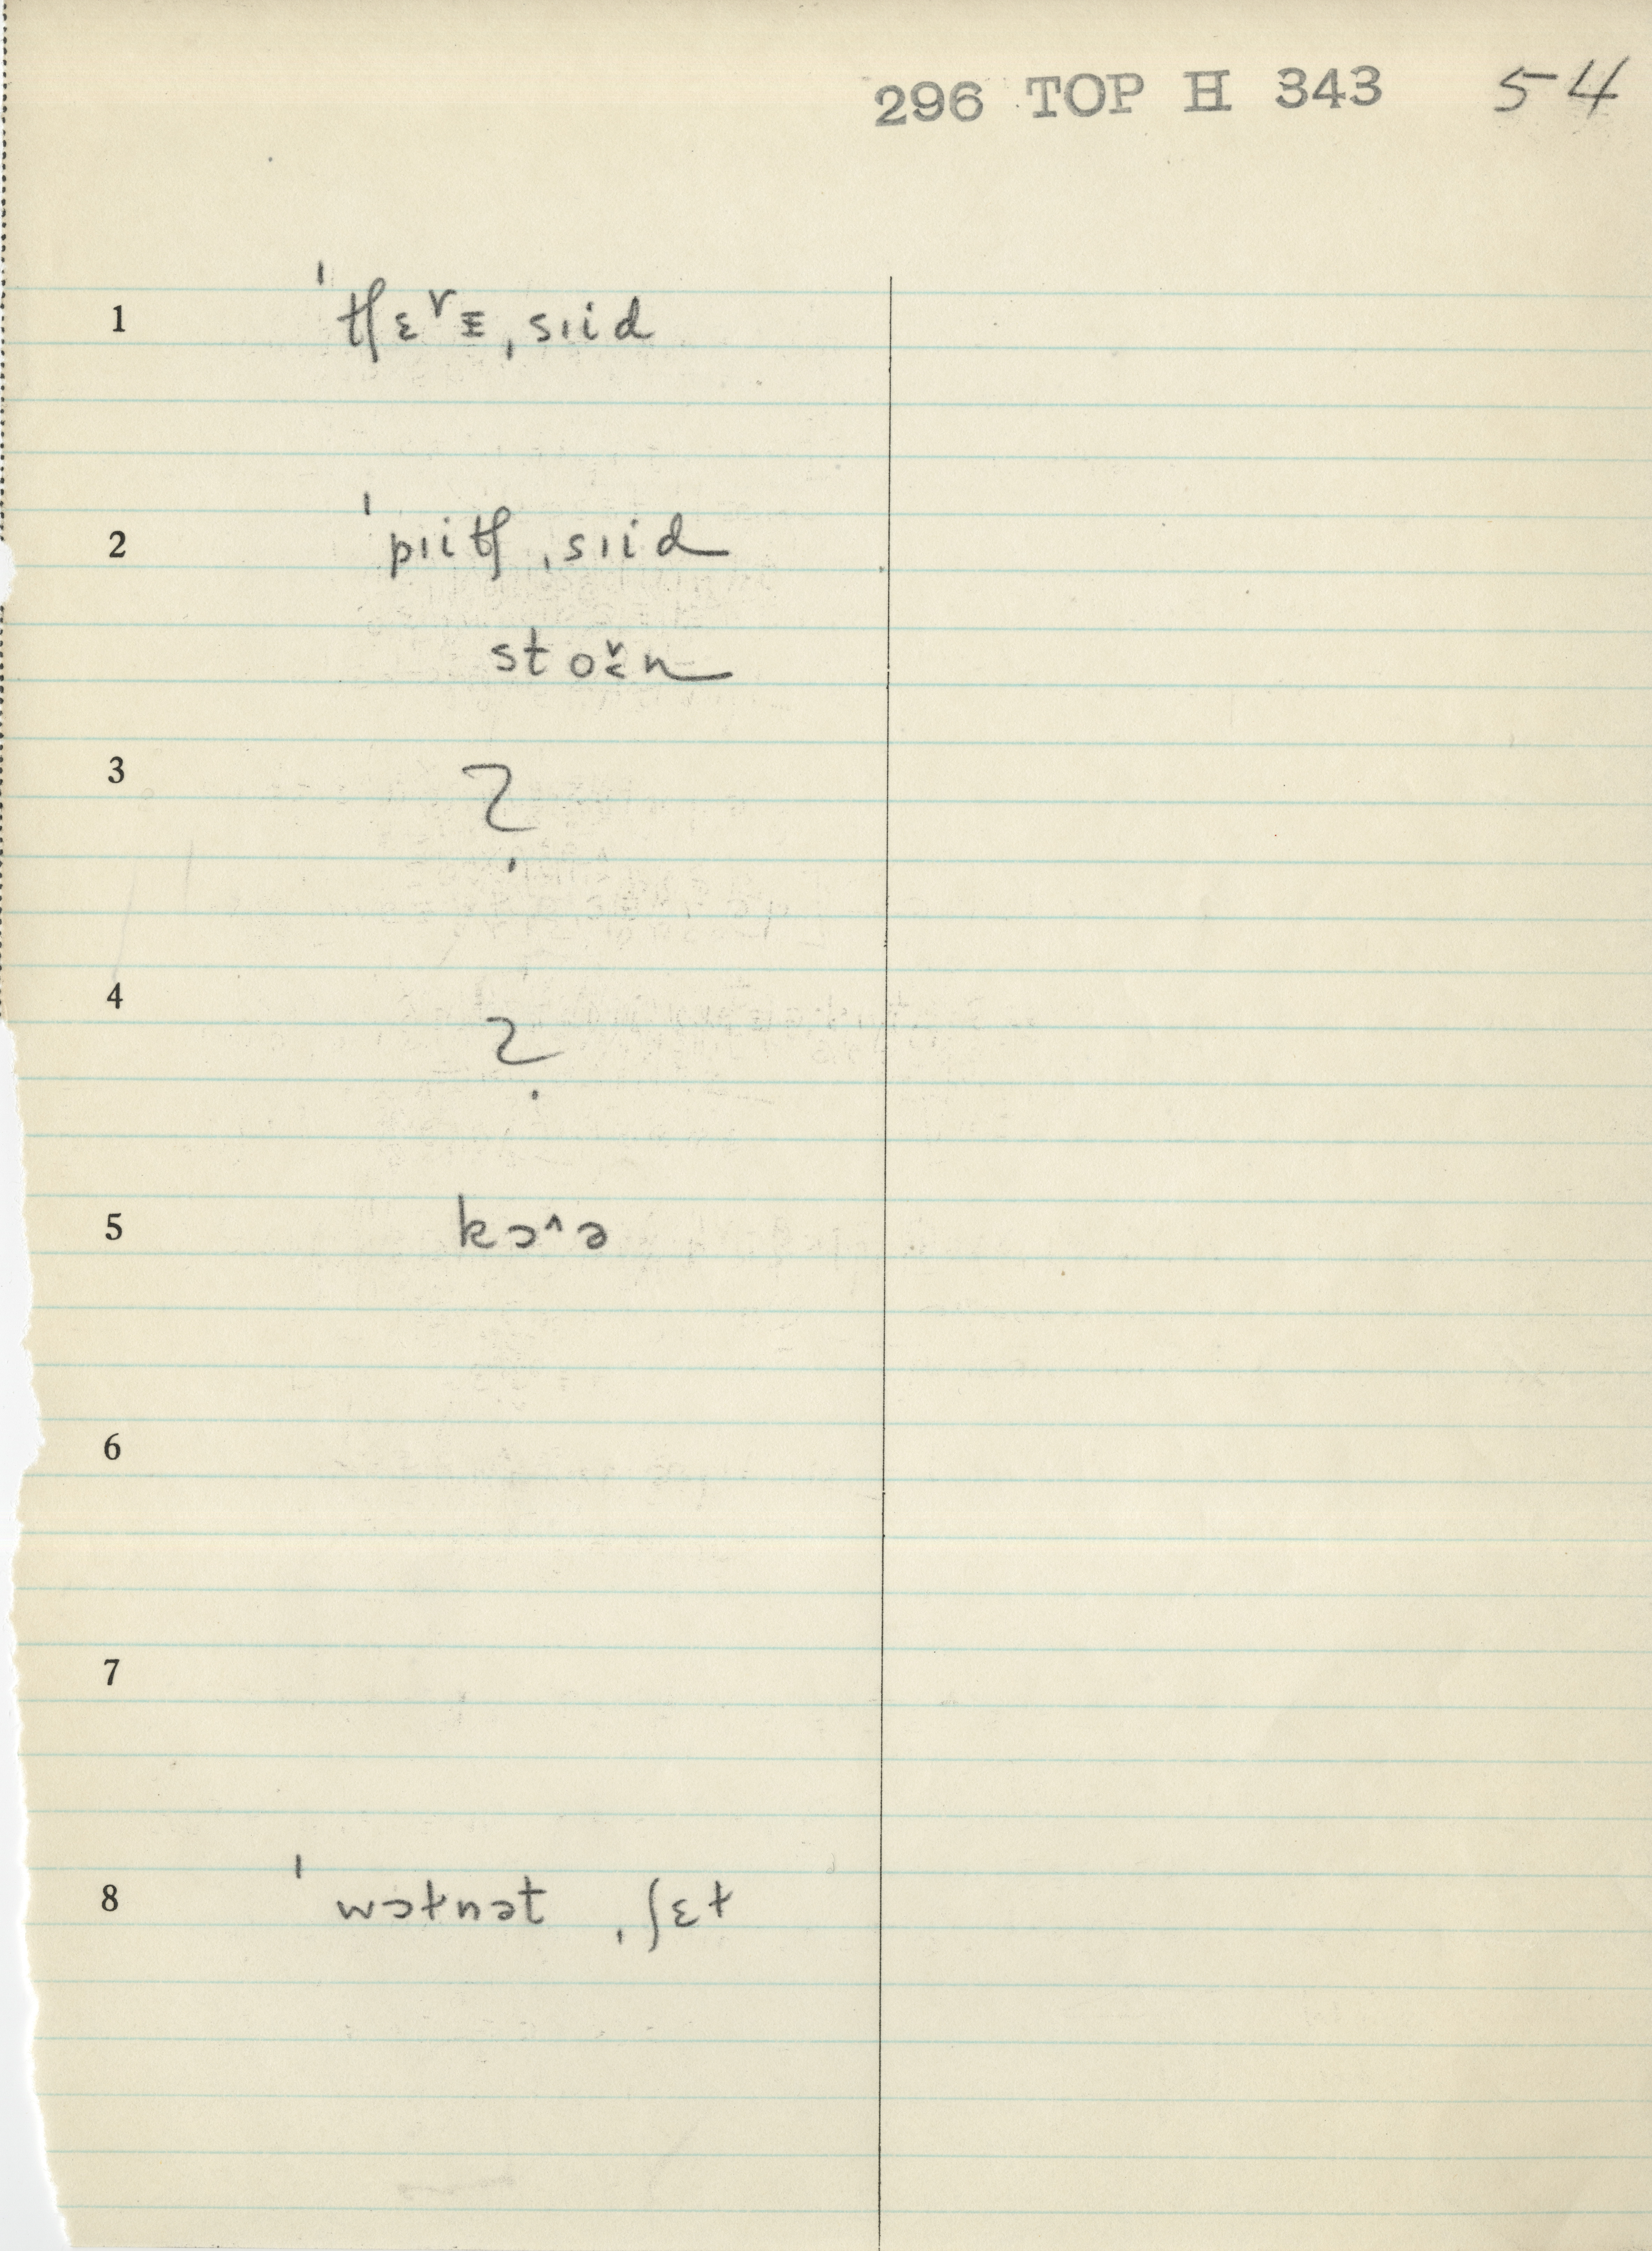 296 TOP H 343 54
1 ˈtʃɛ˅ɪ̵ˌsɪid
2 ˈpɪitʃ ˌsɪid
sto˅ɛn
3 ?
4 ?
5 kɔ^ə
6
7
8 ˈwɔɫnət ˌʃɛɫ